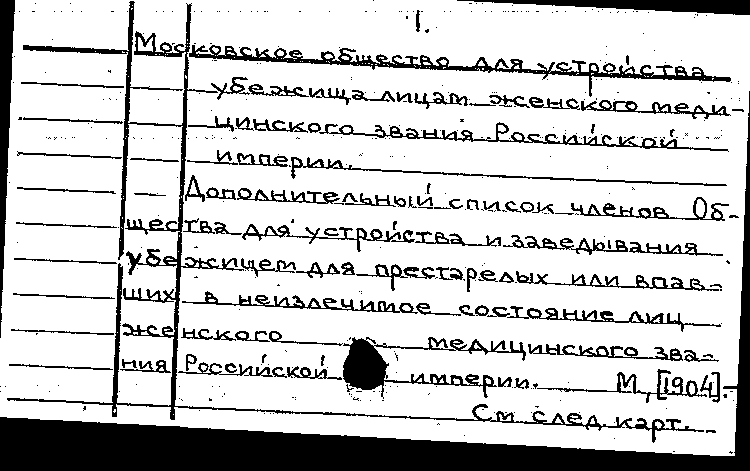 1.
Московское общество для устройства
убежища лицам женского меди-
цинского звания Российской
империи.
— Дополнительный список членов Об-
щества для устройства и заведывания
убежищем для престарелых или впав-
ших в неизлечимое состояние лиц
женского медицинского зва-
ния Российской империи. М, [1904].-
См след. карт.